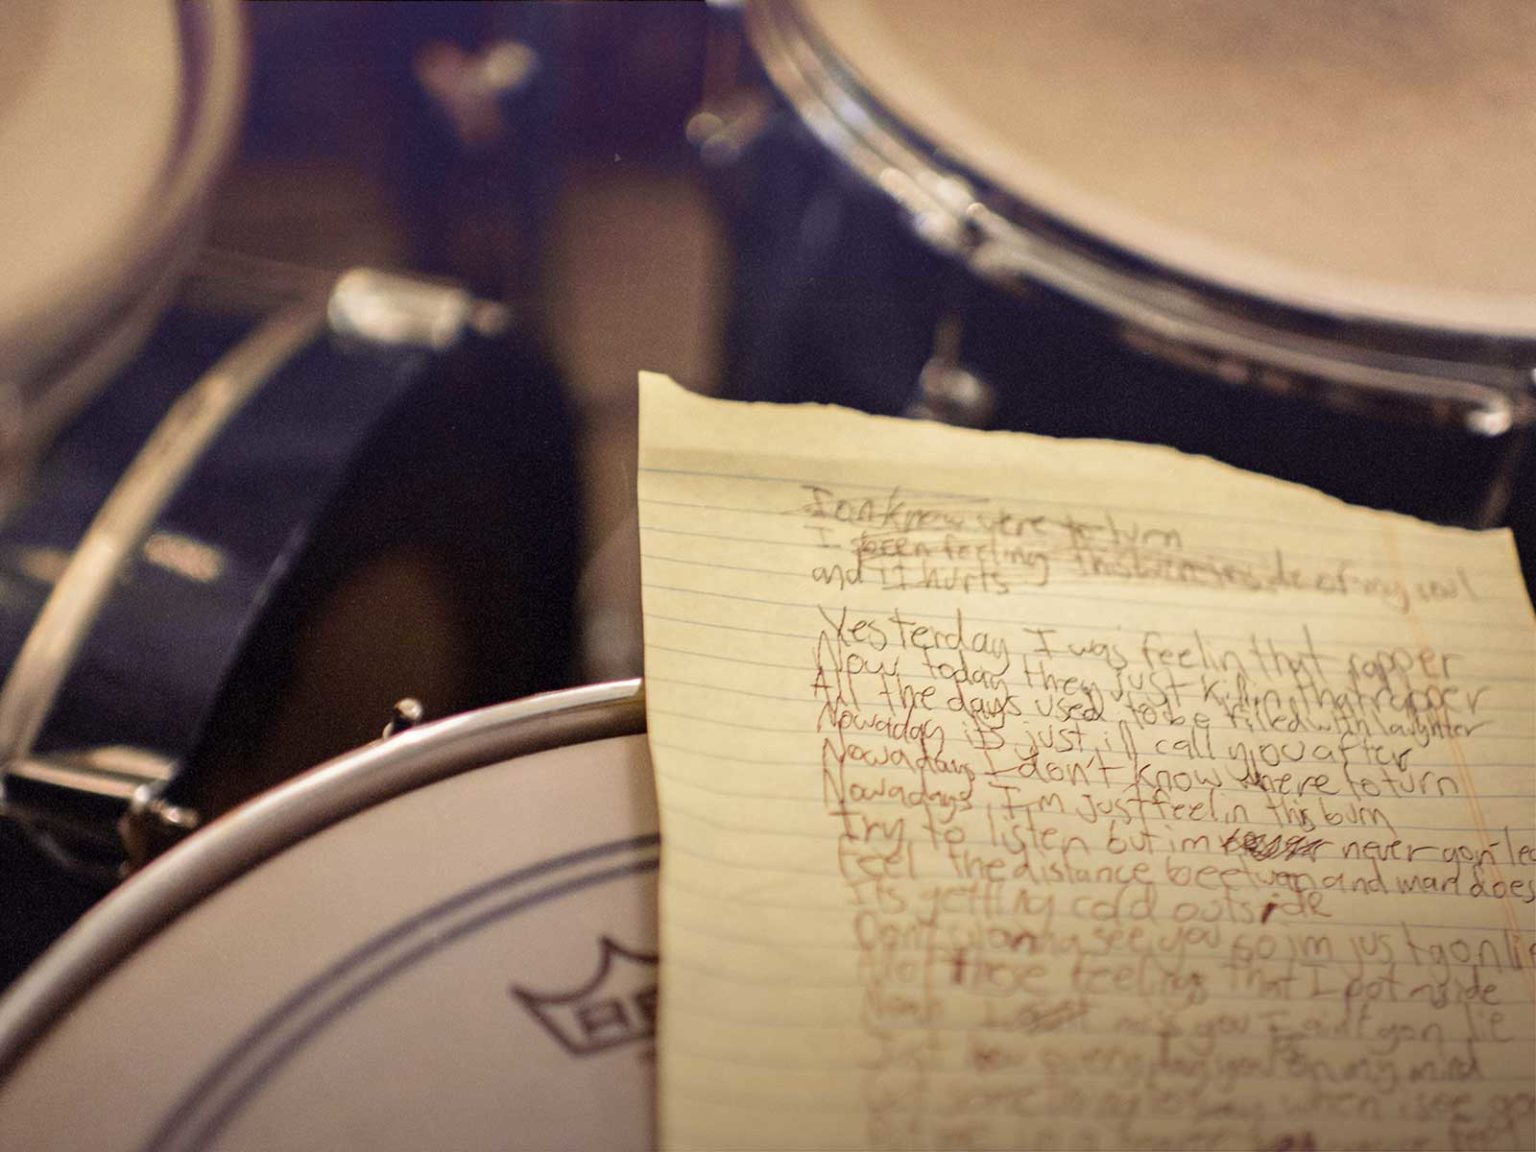 I don know were to turn
I been feeling this burn inside of my soul
and it hurts
Yesterday I was feelin that rapper
Now today they just killin that rapper
All the days used to be filled with laughter
Nowaday it's just, ill call you after
Nowadays I don't know where to turn
Nowadays, I'm just feelin this burn
Try to listen but im never gon lea
Feel the distance beetwen and man does
It's getting cold outside
Don't wanna see you so im just gon
All those feelings that I got inside
miss you I ain't gon lie
Just every day you on my mind
something to say when i see